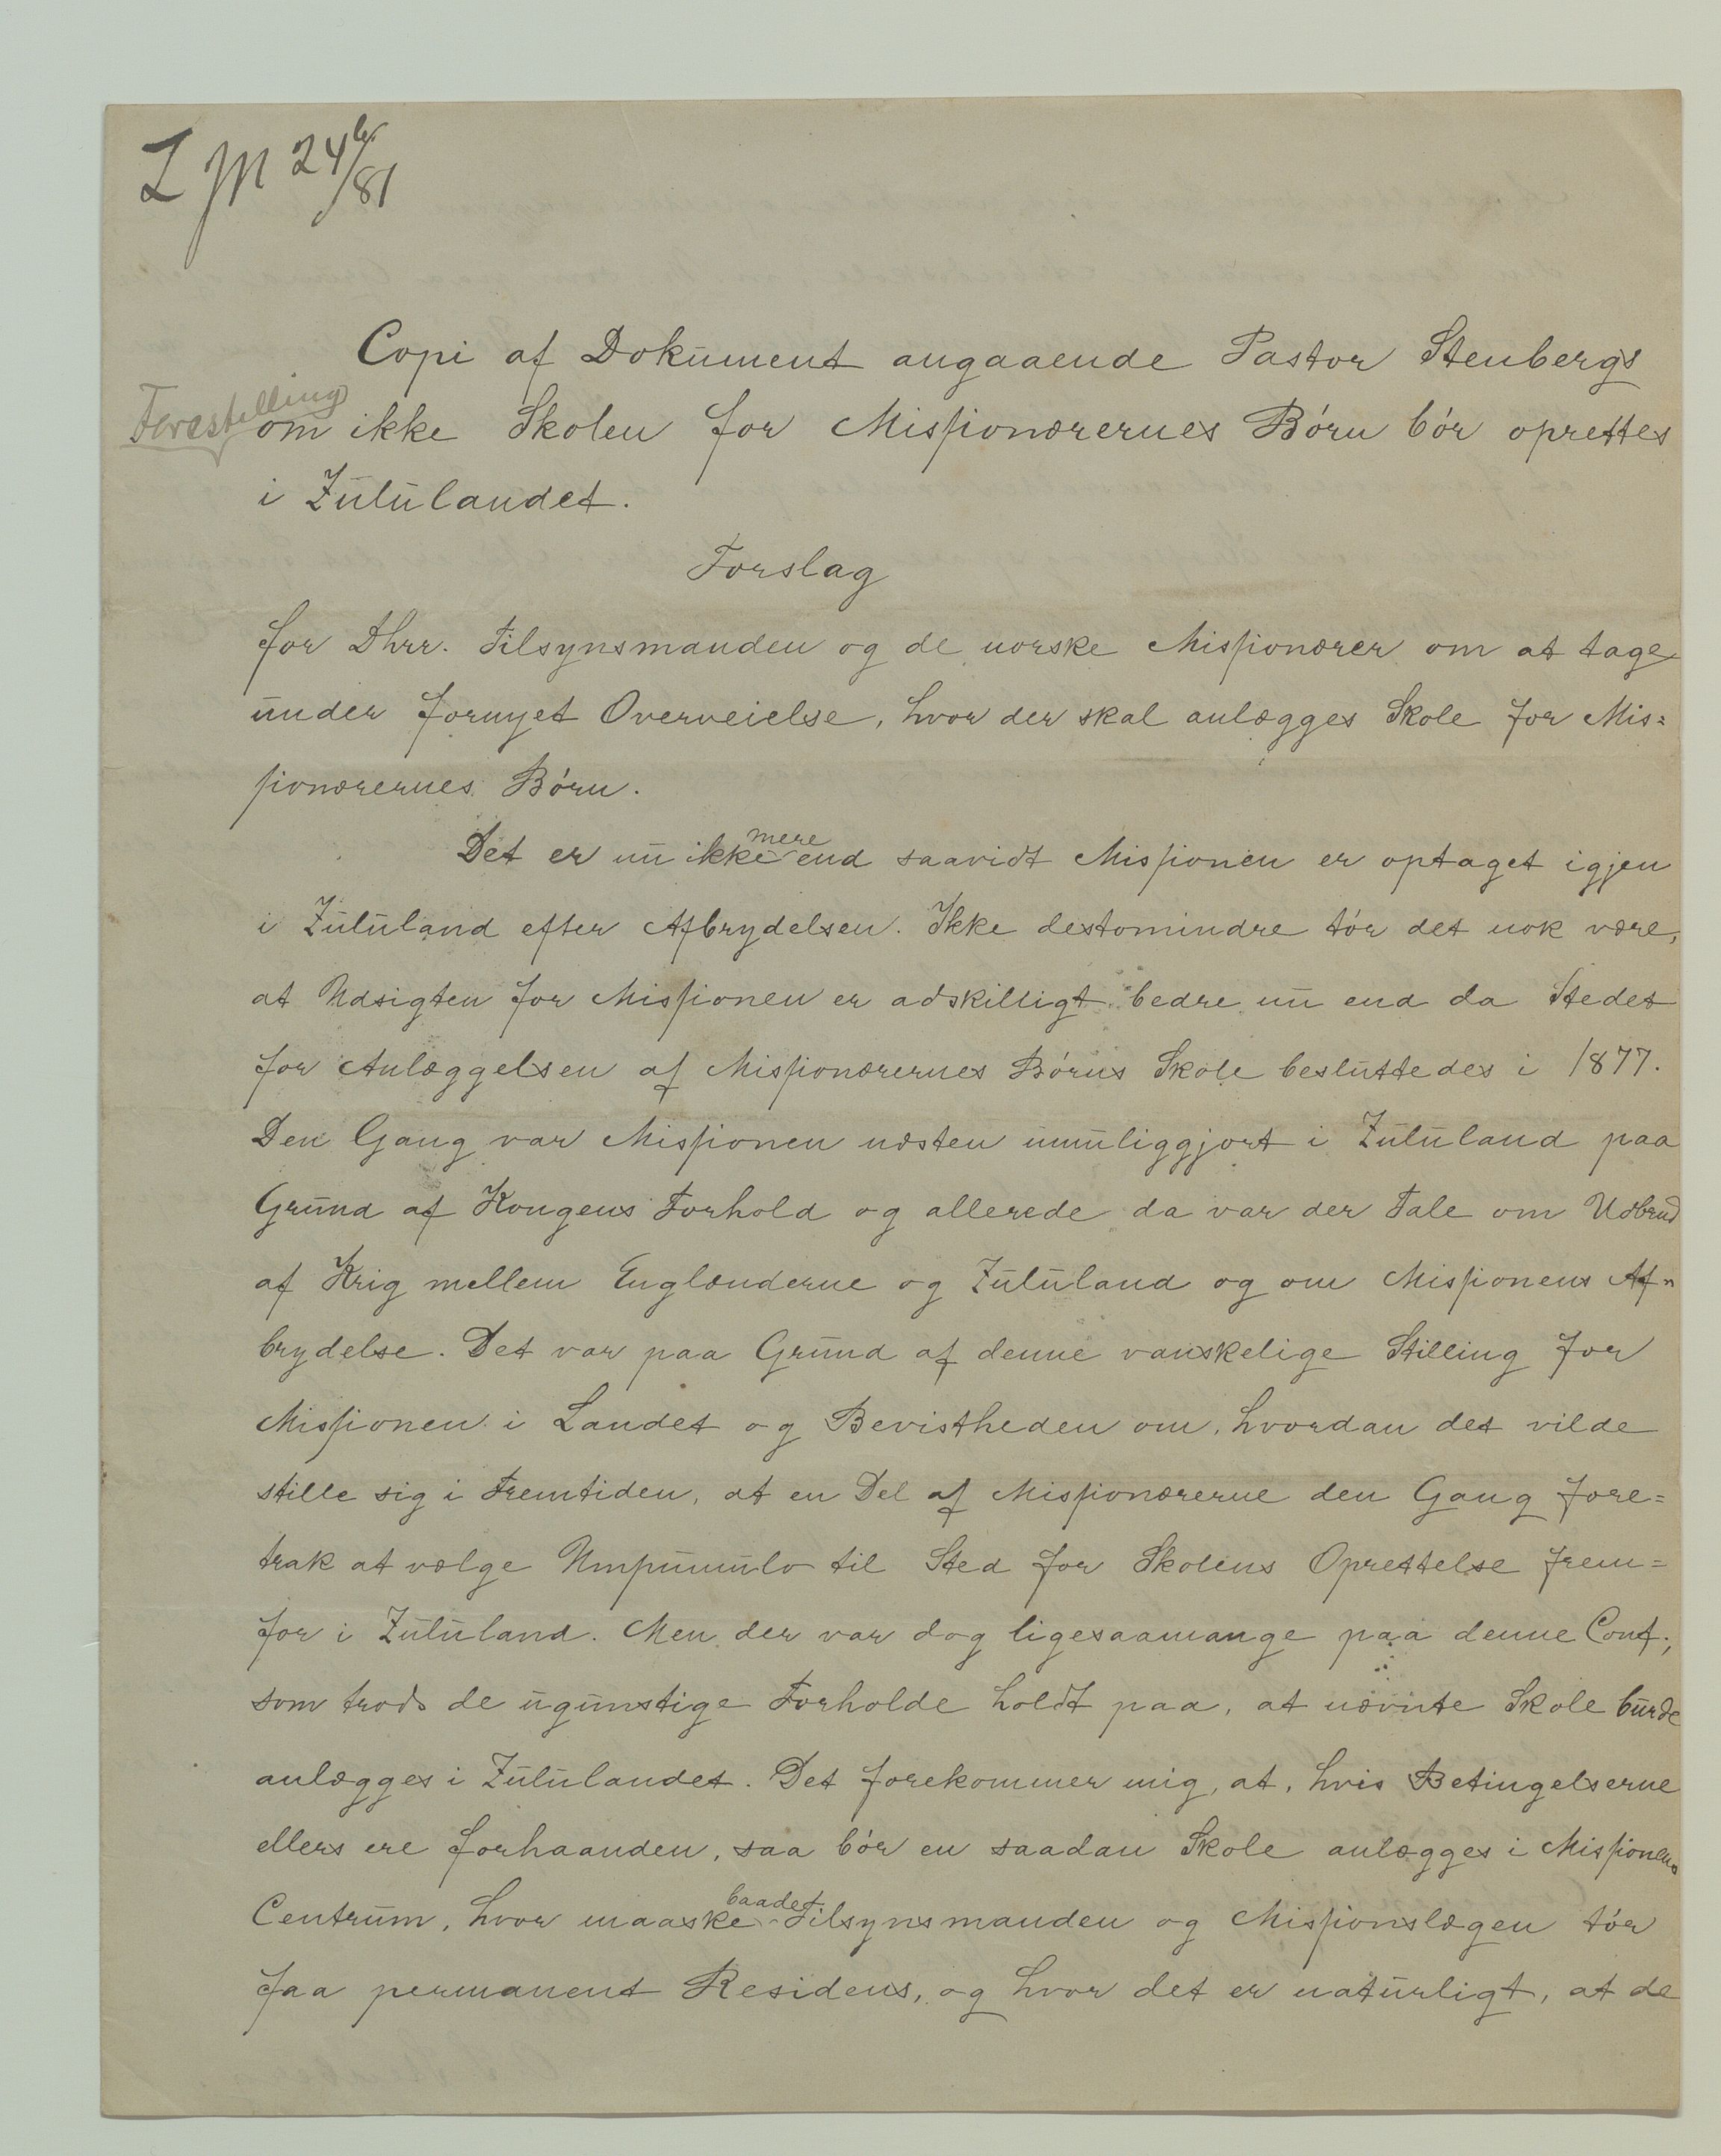 Z M 24 6/81
Copi af Dokument angaaende Pastor Stenbergs
Forestilling
om ikke Skolen for Missionærernes Börn bör oprettes
i Zululandet.
Forslag
for Dhrr. Tilsynsmanden og de norske Missionærer om at tage
under fornyet Overveielse, hvor der skal anlægges Skole for Mis=
sionærernes Börn.
mere
Det er nu ikke end saavidt Missionen er optaget igjen
i Zululand efter Afbrydelsen. Ikke destomindre tör det nok være,
at Udsigten for Missionen er adskilligt bedre nu end da Stedet
for Anlæggelsen af Missionærernes Börns Skole besluttedes i 1877.
Den Gang var Missionen næsten umuliggjort i Zululand paa
Grund af Kongens Forhold og allerede da var der Tale om Udbrud
af Krig mellem Englænderne og Zululand og om Missionens Af=
brydelse. Det var paa Grund af denne vanskelige Stilling for
Missionen i Landet og Bevistheden om, hvordan det vilde
stille sig i Fremtiden, at en Del af Missionærerne den Gang fore=
trak at vælge Umpumulo til Sted for Skolens Oprettelse frem=
for i Zululand. Men der var dog ligesaamange paa denne Conf.,
som trods de ugunstige Forholde holdt paa, at nævnte Skole burde
anlægges i Zululandet. Det forekommer mig, at, hvis Betingelserne
ellers ere forhaanden, saa bör en saadan Skole anlægges i Missionens
baade
Centrum, hvor maaske Tilsynsmanden og Missionslægen tör
faa permanent Residens, og hvor det er naturligt, at de